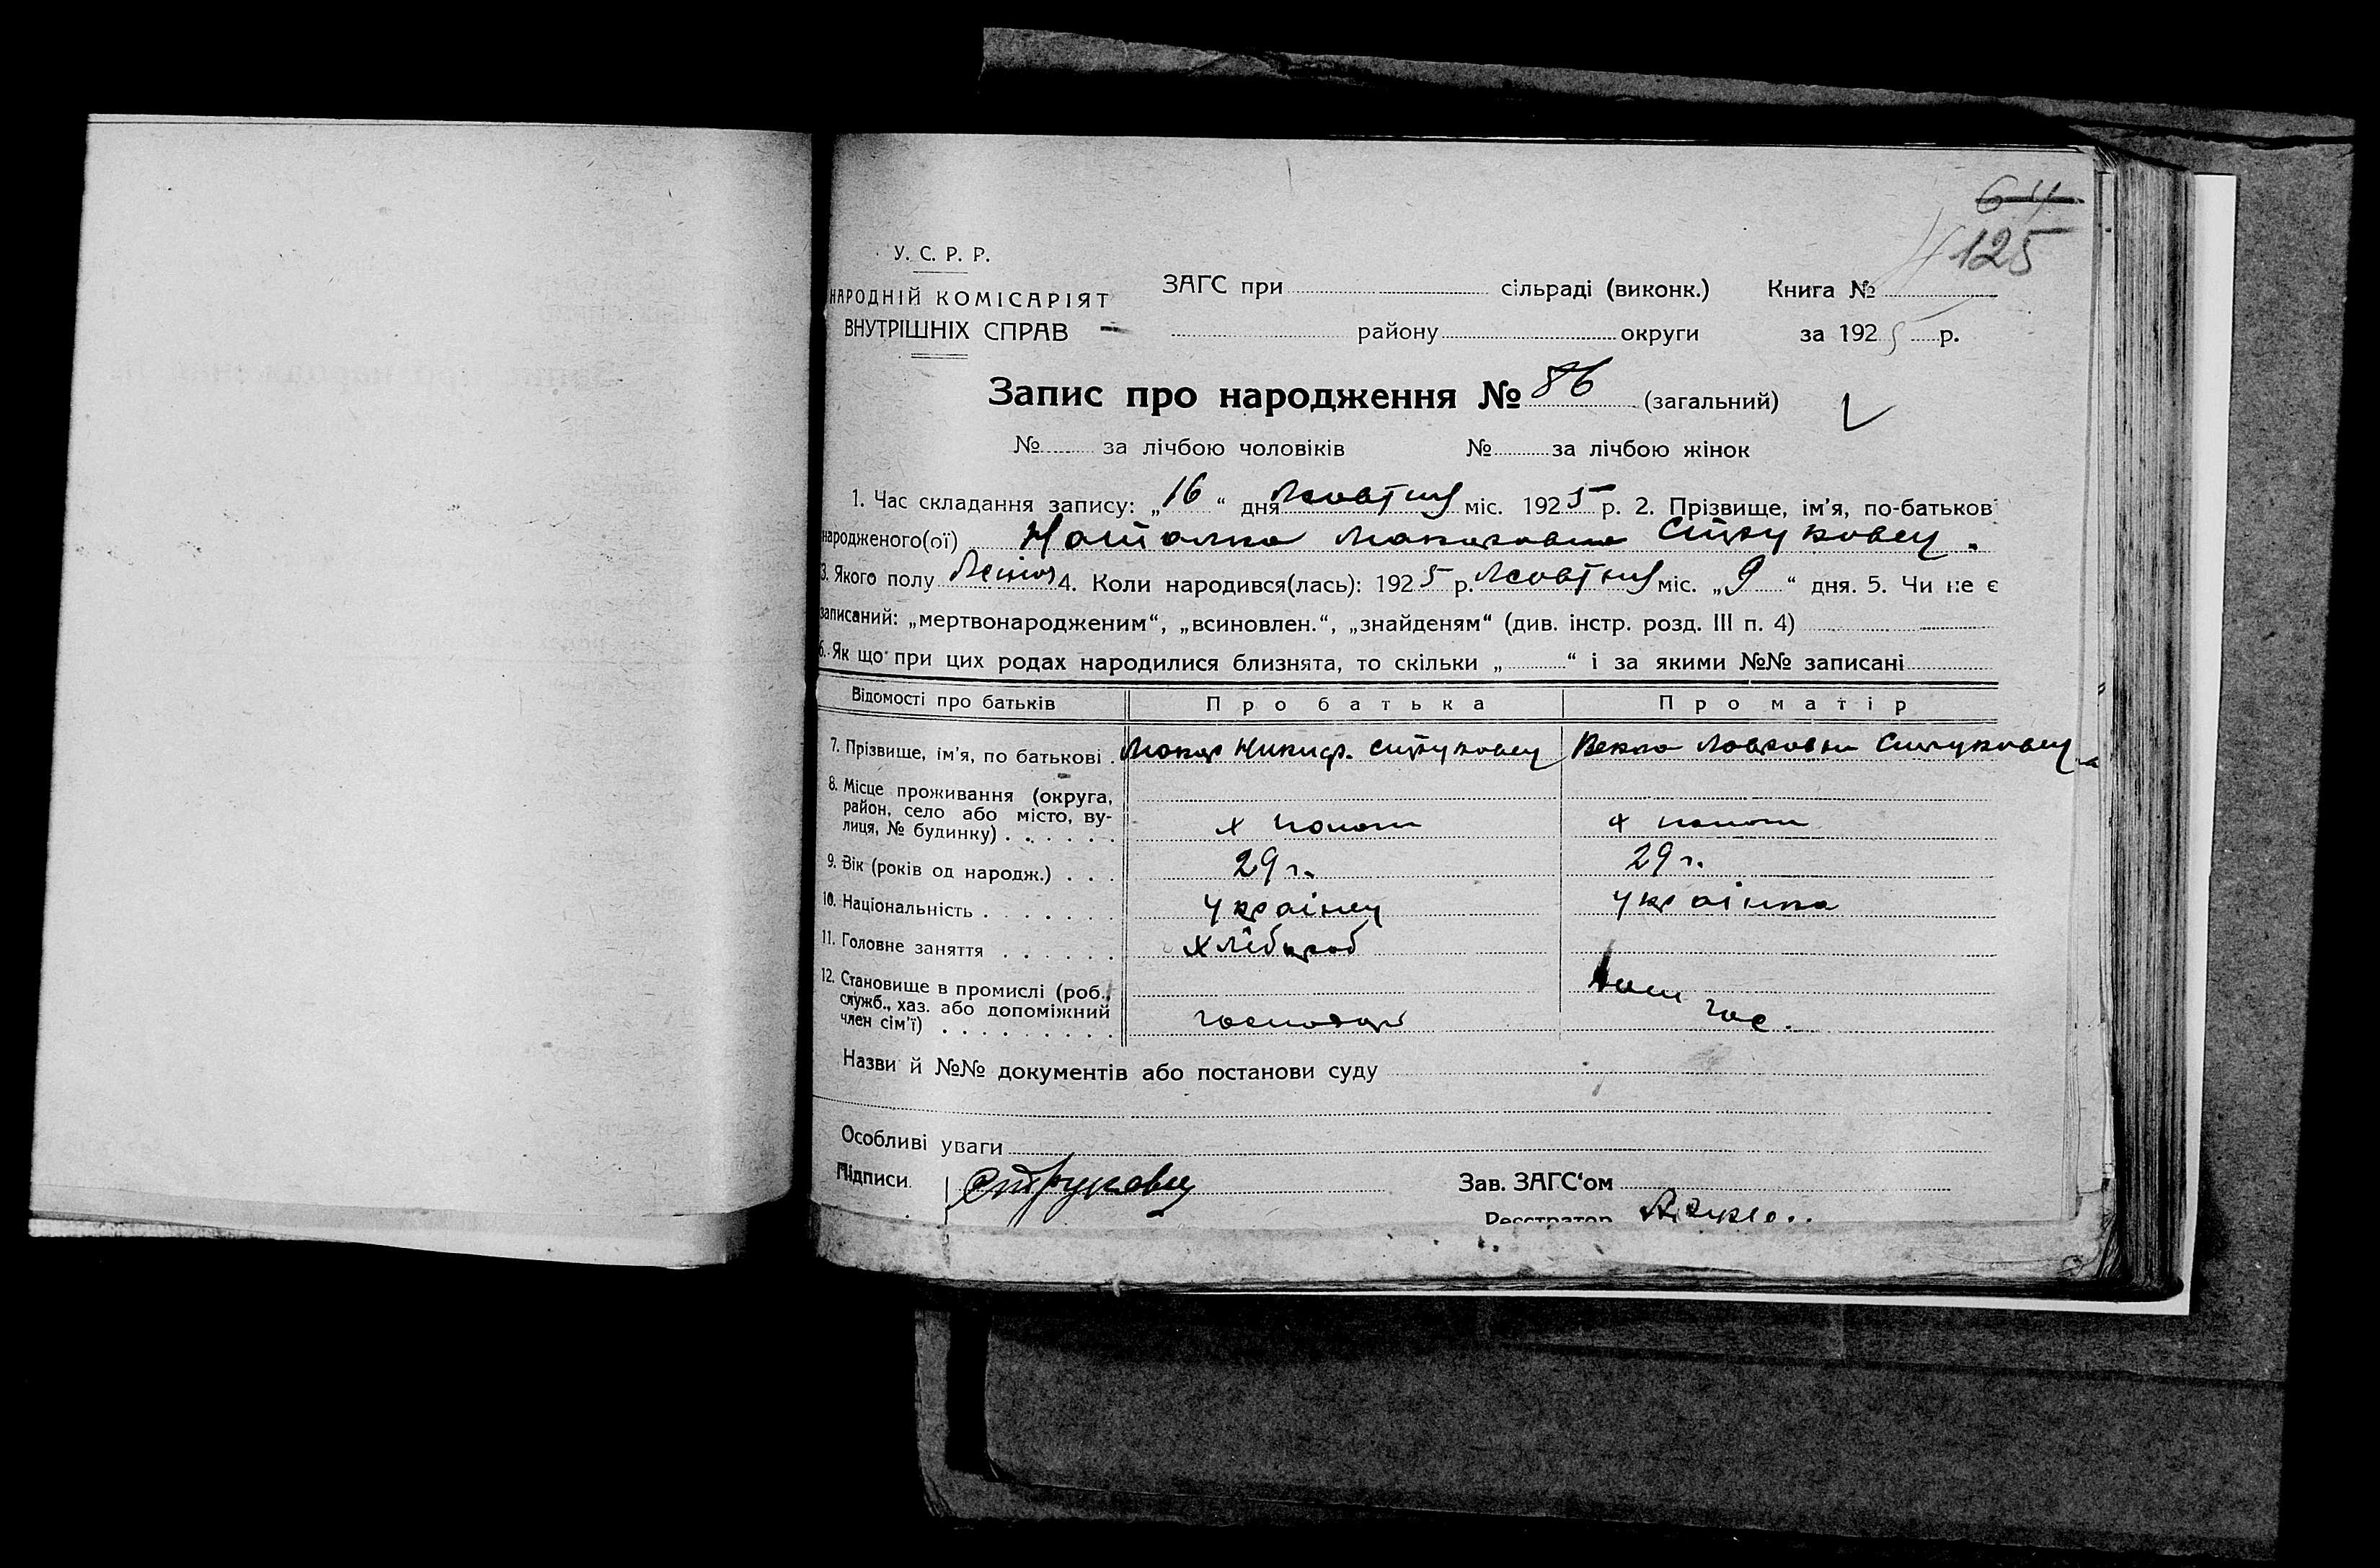 64
125
У. С. Р. Р.
НАРОДНІЙ КОМІСАРІЯТ
ВНУТРІШНІХ СПРАВ
ЗАГС при сільраді (виконк.) Книга №
району округи за 1925 р.
Запис про народження № 86 (загальний)
№ за лічбою чоловіків № за лічбою жінок
1. Час складання запису: „16“ дня Жовтня міс. 1925 р. 2. Прізвище, ім'я, по-батькові
народженого(ої) Наталка Макаровна Струковец.
3. Якого полу Жіноч 4. Коли народився(лась): 1925 р. Жовтня міс. „9“ дня. 5. Чи не є
записаний: „мертвонародженим“, „всиновлен.“, „знайденям“ (див. інстр. розд. III п. 4)
6. Як що при цих родах народилися близнята, то скільки „ “ і за якими №№ записані
Відомості про батьків Про батька Про матір
7. Прізвище, ім'я, по батькові . Макар Никиф. Струковец Векла Лавровна Струковец
8. Місце проживання (округа,
район, село або місто, ву-
лиця, № будинку) . . . . . х х
9. Вік (років од народж.) . . . 29 г. 29 г.
10. Національність . . . . . . . українец українка
11. Головне заняття . . . . . . хлібороб
12. Становище в промислі (роб.,
служб., хаз. або допоміжний
член сім'ї) . . . . . . . . . господарь гос.
Назви й №№ документів або постанови суду
Особливі уваги
Підписи Струковец Зав. ЗАГС‘ом
Реєстратор